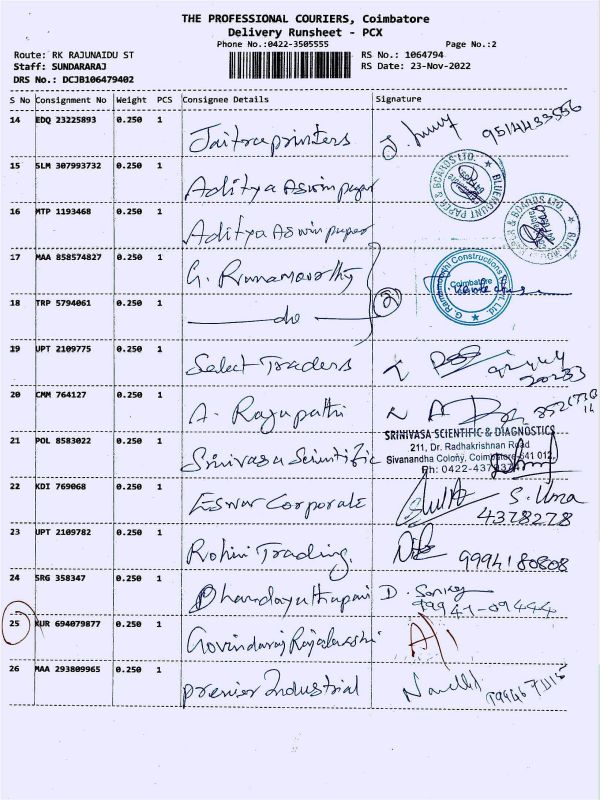 THE PROFESSIONAL COURIERS, Coimbatore
Delivery Runsheet - PCX
Phone No.:0422-3505555
Page No.:2
Route: RK RAJUNAIDU ST
RS No.: 1064794
Staff: SUNDARARAJ
RS Date: 23-Nov-2022
DRS No.: DCJB106479402
S No Consignment No Weight PCS Consignee Details Signature
14 EDQ 23225893 0.250 1 Jaitraprinters 9514433556
15 SLM 307993732 0.250 1 Aditya Aswin paper
BLUEMOUNT PAPER & BOARDS LTD.
16 MTP 1193468 0.250 1 Aditya Aswin paper
17 MAA 858574827 0.250 1 G. Ramamoorthy
2
Coimbatore
18 TRP 5794061 0.250 1 do
19 UPT 2109775 0.250 1 Select Traders
20233
20 CMM 764127 0.250 1 A. Rajupathi
21 POL 8583022 0.250 1 Srinivasa Scientific
SRINIVASA SCIENTIFIC & DIAGNOSTICS
211, Dr. Radhakrishnan Road
Sivanandha Colony, Coimbatore-641 012.
Ph: 0422-437
22 KDI 769068 0.250 1 Eswar Corporate S. Uma
4378278
23 UPT 2109782 0.250 1 Rohini Trading. 9994180808
24 SRG 358347 0.250 1 Dhandayuthapani D. Sankar
99941-09444
25 KUR 694079877 0.250 1 Govindaraj Rajalakshmi
26 MAA 293809965 0.250 1 premier Industrial